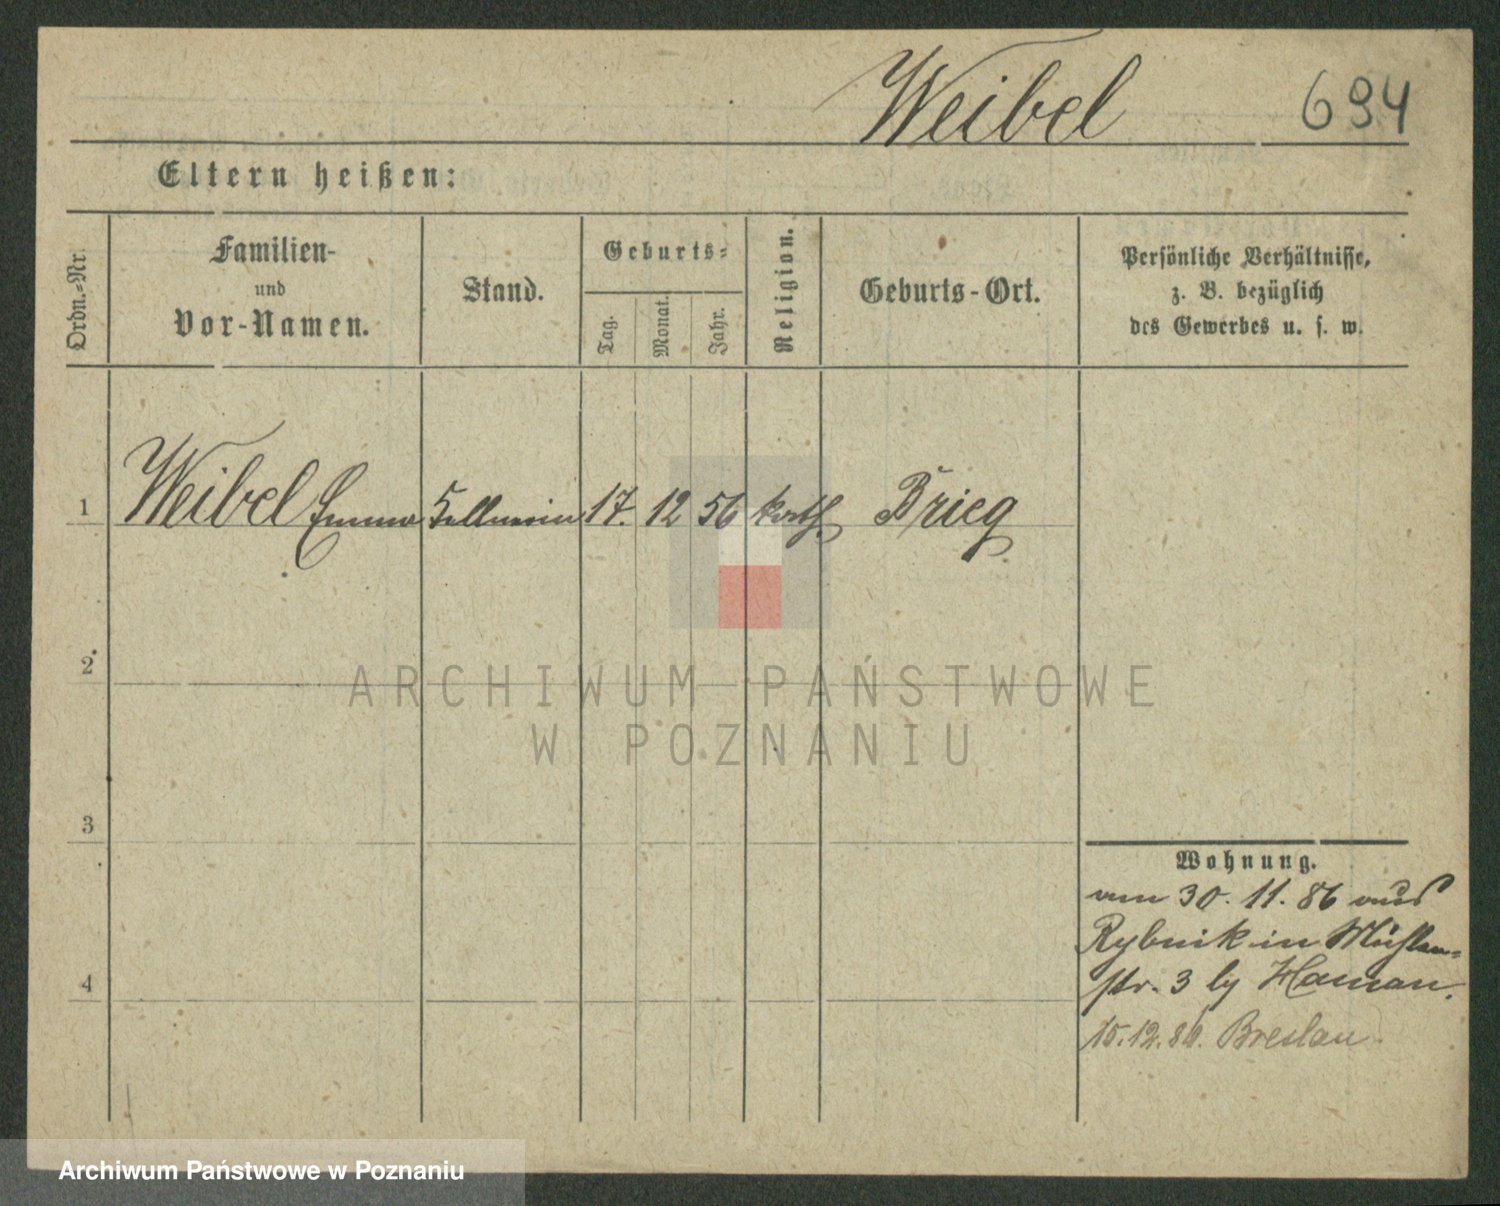 Weibel 694
Eltern heißen:
Ordn.-Nr.
Familien-
und
Vor-Namen.
Stand.
Geburts-
Tag.
Monat.
Jahr.
Religion.
Geburts-Ort.
Persönliche Verhältnisse,
z. B. bezüglich
des Gewerbes u. s. w.
1 Weibel Emma Kellnerin 17. 12 56 kath. Brieg
2
ARCHIWUM PAŃSTWOWE
W POZNANIU
3
4
Wohnung.
am 30. 11. 86 aus
Rybnik in Mühlen-
str. 3 by Haman.
15.12.86. Breslau.
Archiwum Państwowe w Poznaniu